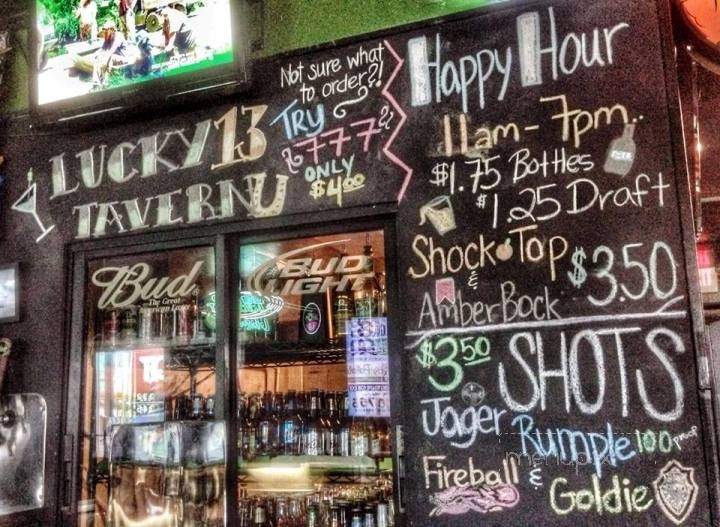 LUCKY 13
TAVERN
Not sure what
to order?!
TRY
777
ONLY
$4.00
Happy Hour
11am - 7pm..
$1.75 Bottles
$1.25 Draft
Shock Top
&
AmberBock
$3.50
$3.50 SHOTS
Jager Rumple 100 proof
Fireball & Goldie
Bud
The Great
American Lager
BUD
LIGHT